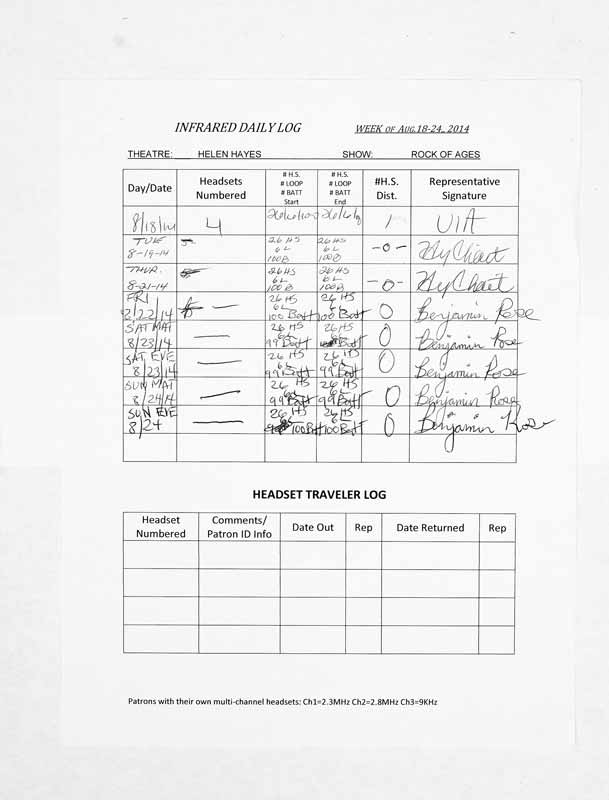 INFRARED DAILY LOG WEEK OF AUG.18-24, 2014
THEATRE: HELEN HAYES SHOW: ROCK OF AGES
Day/Date Headsets Numbered # H.S. # LOOP # BATT Start # H.S. # LOOP # BATT End #H.S. Dist. Representative Signature
8/18/14 4 26/6/100 26/6/ 1
TUE 8-19-14 26 HS 6L 100B 26 HS 6L 100B -0-
THUR. 8-21-14 26HS 6L 100B 26HS 6L 100B -0-
FRI 8/22/14 — 26 HS 6L 100 Batt 26 HS 6L 100 Batt 0 Benjamin Rose
SAT MAT 8/23/14 — 26 HS 6L 99 Batt 26 HS 6L Batt 0 Benjamin Rose
SAT EVE 8/23/14 — 26 HS 6L 99 Batt 26 HS 6L 99 Batt 0 Benjamin Rose
SUN MAT 8/24/14 — 26 HS 6L 99 Batt 26 HS 6L 99 Batt 0 Benjamin Rose
SUN EVE 8/24 — 26 HS 6L 100 Batt 26 HS 6L 100 Batt 0 Benjamin Rose
HEADSET TRAVELER LOG
Headset Numbered Comments/ Patron ID Info Date Out Rep Date Returned Rep
Patrons with their own multi-channel headsets: Ch1=2.3MHz Ch2=2.8MHz Ch3=9KHz